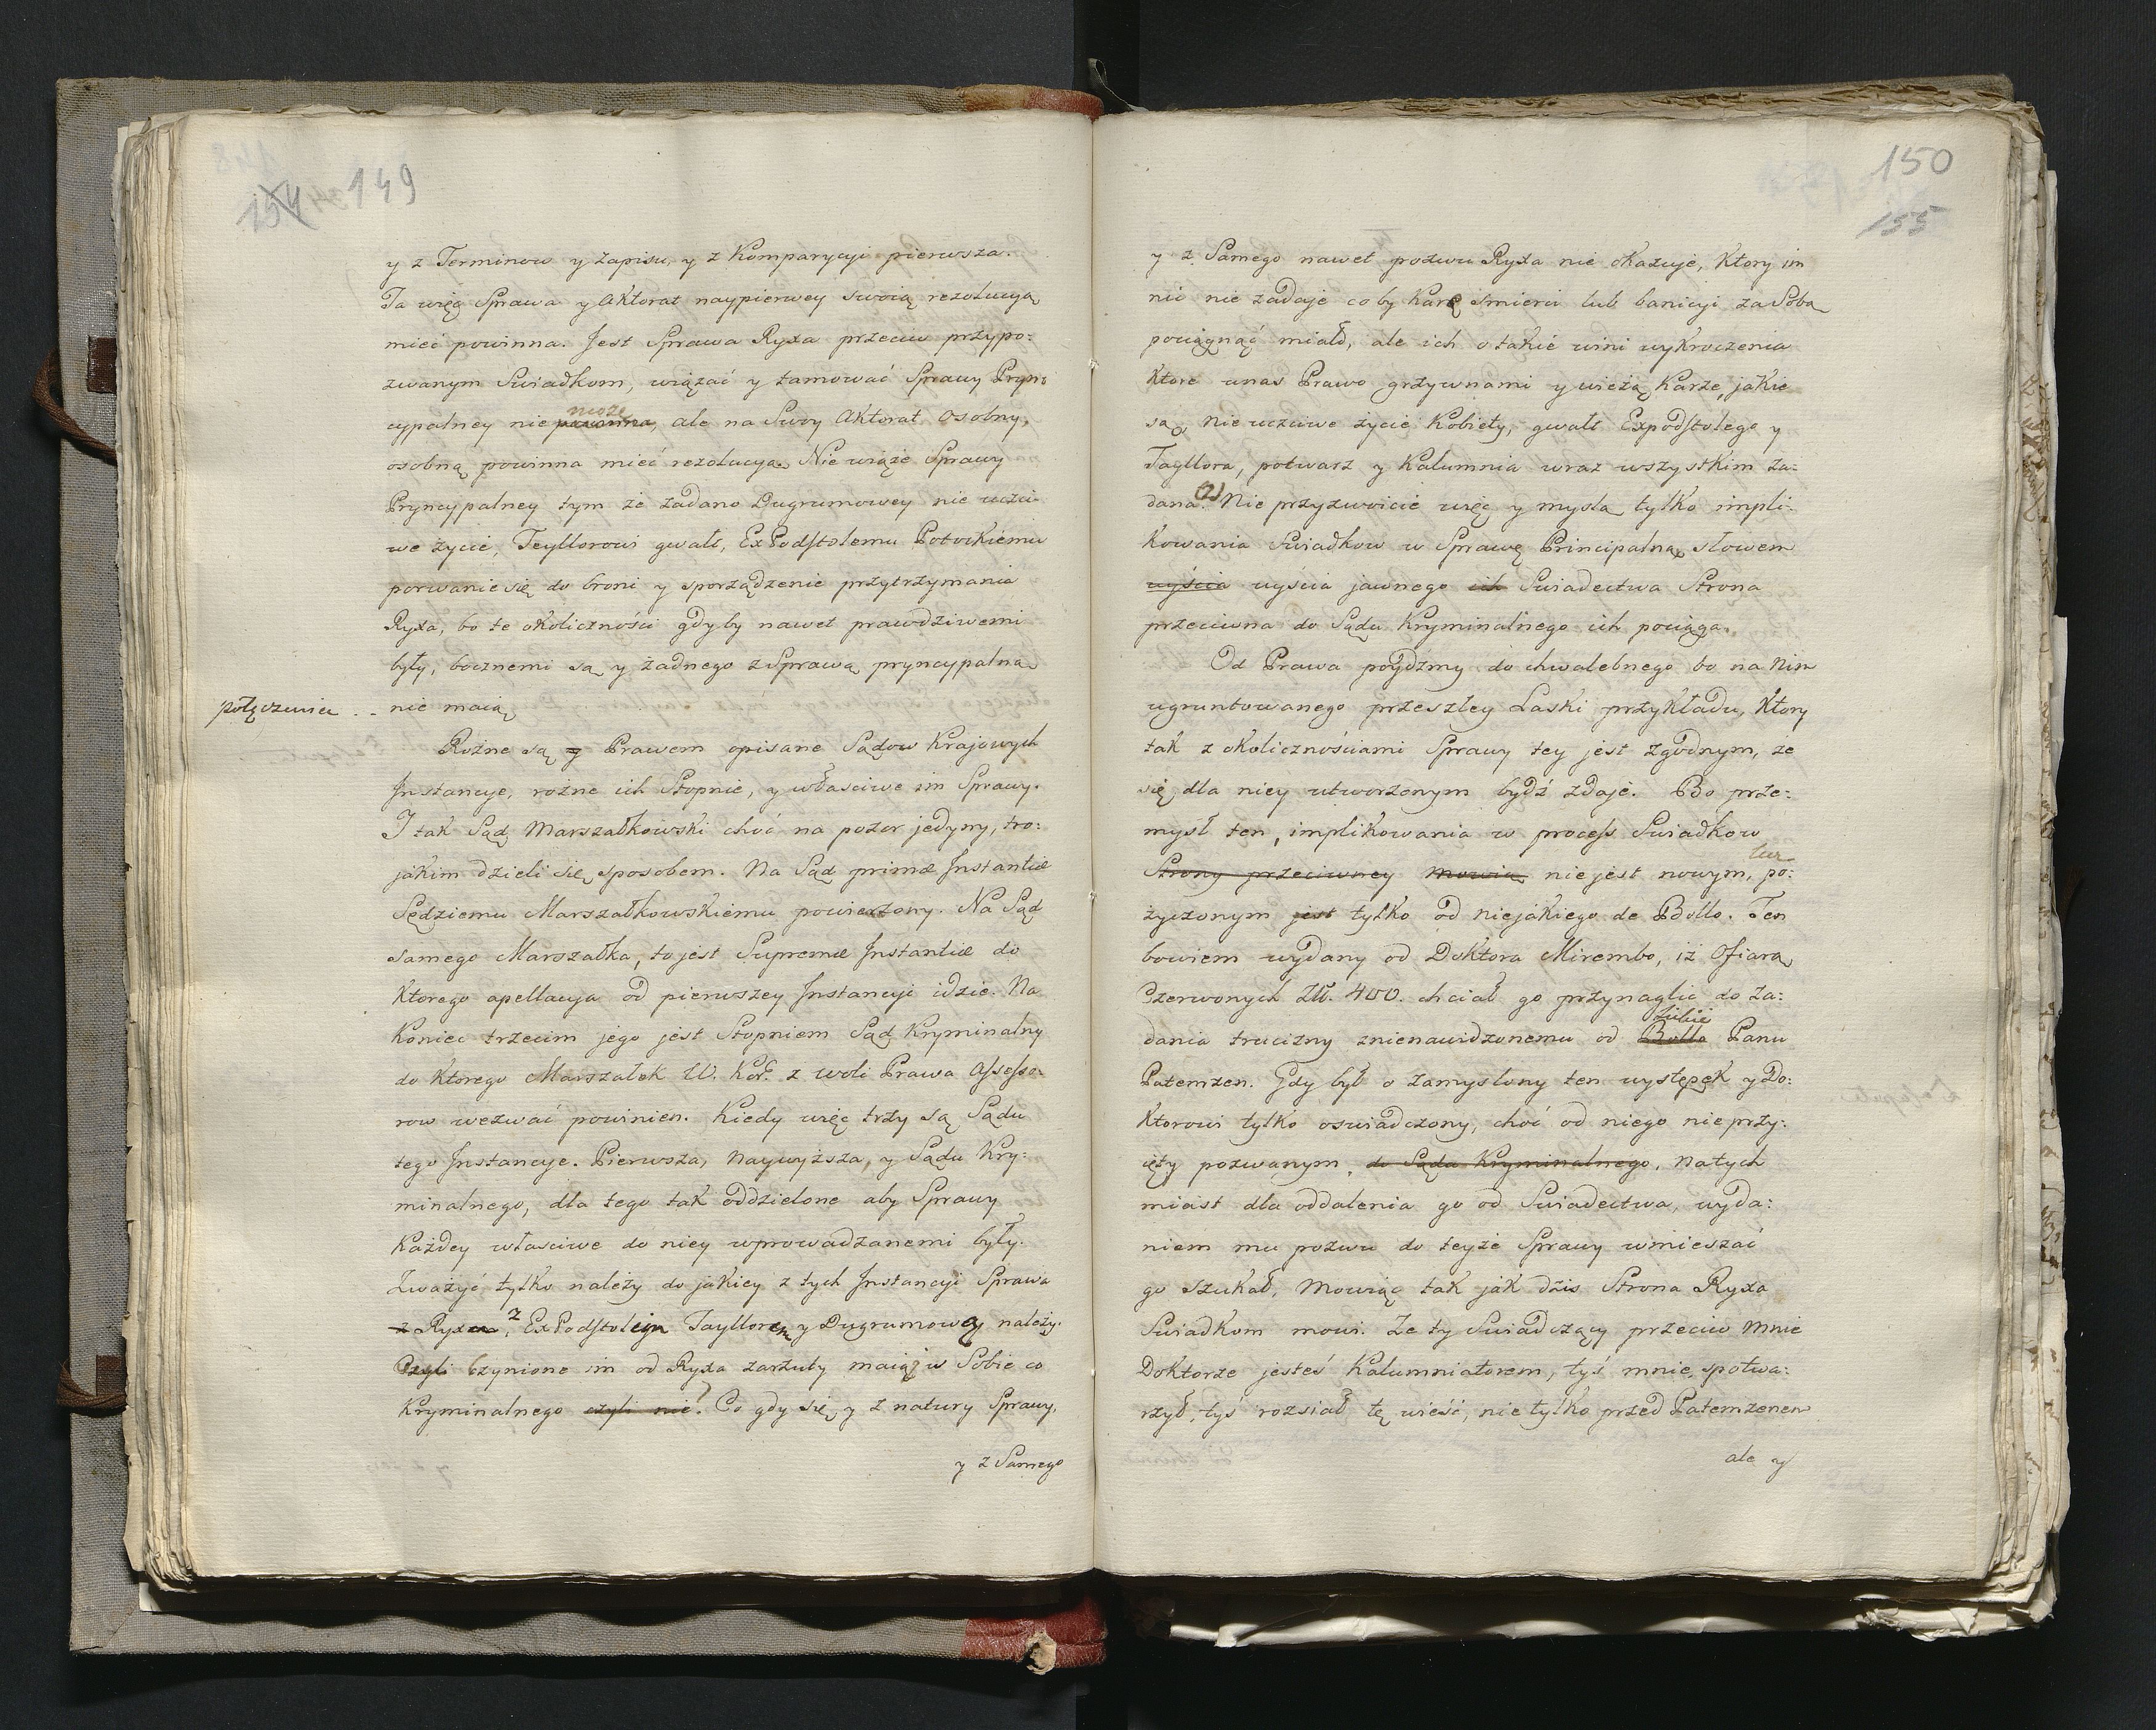 154 149
y z Terminow y zapisu, y z Komparycyi pierwsza.
Ta więc Sprawa y Aktorat naypierwey swoią rezolucyą
mieć powinna. Jest Sprawa Ryxa przeciw przypo:
zwanym Swiadkom, wiązać y tamować Sprawy Pryn:
może
cypalney nie powinna, ale na Swoy Aktorat osobny,
osobną powinna mieć rezolucyą. Nie wiąże Sprawy
Pryncypalney tym że zadano Dugrumowey nie uczci
we życie, Teyllorowi gwałt, ExPodstolemu Potockiemu
porwanie się do broni y sporządzenie przytrzymania
Ryxa, bo te okoliczności gdyby nawet prawdziwemi
były, bocznemi są y żadnego z Sprawą pryncypalną
połączenia .. nie maią
Rożne są y Prawem opisane Sądow Krajowych
Instancye, rożne ich Stopnie, y własciwe im Sprawy.
I tak Sąd Marszałkowski choć na pozor jedyny, tro:
jakim dzieli się sposobem. Na Sąd primæ Instantiæ
Sędziemu Marszałkowskiemu powierzony. Na Sąd
samego Marszałka, to jest Supremæ Instantiæ do
Ktorego apellacya od pierwszey Instancyi idzie. Na
Koniec trzecim jego jest Stopniem Sąd Kryminalny
do Ktorego Marszałek W. Kor. z woli Prawa Assesso:
row wezwać powinien. Kiedy więc trzy są Sądu
tego Instancye. Pierwsza, Naywyższa, y Sądu Kry:
minalnego, dla tego tak oddzielone aby Sprawy
Każdey własciwe do niey wprowadzanemi były.
Zważyć tylko należy do jakiey z tych Instancyi Sprawa
z Ryxa, z ExPodstolim Tayllorem y Dugrumową należy.
Czyli czynione im od Ryxa zarzuty maią w Sobie co
Kryminalnego czyli nie? Co gdy się y z natury Sprawy,
y z Samego
150
155
y z Samego nawet pozwu Ryxa nie okazuje, Ktory im
nic nie zadaje coby Karę smierci lub banicyi za Sobą
pociągnąć miało, ale ich o takie wini wykroczenia
Ktore u nas Prawo grzywnami y wieżą Karze, jakie
są, Nie uczciwe życie Kobiety, gwałt Expodstolego y
Tayllora, potwarz y Kalumnia wraz wszystkim za:
dana. Nie przyzwoicie więc y myslą tylko impli:
Kowania Swiadkow w Sprawę Principalną słowem
uyścia uyścia jawnego ich Swiadectwa Strona
przeciwna do Sądu Kryminalnego ich pociąga.
Od Prawa poydźmy do chwalebnego bo na Nim
ugruntowanego przeszłey Laski przykładu, Ktory
tak z okolicznościami Sprawy tey jest zgodnym, że
się dla niey utworzonym bydź zdaje. Bo prze:
mysł ten, implikowania w process Swiadkow
lecz
Strony przeciwney mowią nie jest nowym, po:
życzonym jest tylko od niejakiego de Bollo. Ten
bowiem wydany od Doktora Mirembo, iż Ofiarą
Czerwonych Zł. 400. chciał go przynaglić do za:
siebie
dania trucizny znienawidzonemu od Bollo Panu
Patemzen. Gdy był o zamyslony ten występek y Do:
Ktorowi tylko oswiadczony, choć od niego nie przy:
ięty pozwanym, do Sądu Kryminalnego, natych
miast dla oddalenia go od Swiadectwa, wyda:
niem mu pozwu do teyże Sprawy wmieszać
go szukał, Mowiąc tak jak dzis Strona Ryxa
Swiadkom mowi. Ze ty Swiadczący przeciw Mnie
Doktorze jesteś Kalumniatorem, tyś mnie, spotwa:
rzył, tyś rozsiał tę wieść, nie tylko przed Patemzenem
ale y